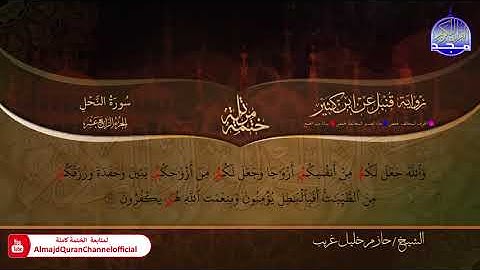 مجد
رواية قنبل عن ابن كثير
ختمة مرتلة
سُورَةُ النَّحْلِ
الجزء الرابع عشر
وَٱللَّهُ جَعَلَ لَكُم مِّنْ أَنفُسِكُمْ أَزْوَٰجًا وَجَعَلَ لَكُم مِّنْ أَزْوَٰجِكُم بَنِينَ وَحَفَدَةً وَرَزَقَكُم
مِّنَ ٱلطَّيِّبَٰتِ أَفَبِٱلْبَٰطِلِ يُؤْمِنُونَ وَبِنِعْمَتِ ٱللَّهِ هُمْ يَكْفُرُونَ
الشيخ / حازم خليل غريب
You Tube
لمتابعة الختمة كاملة
AlmajdQuranChannelofficial